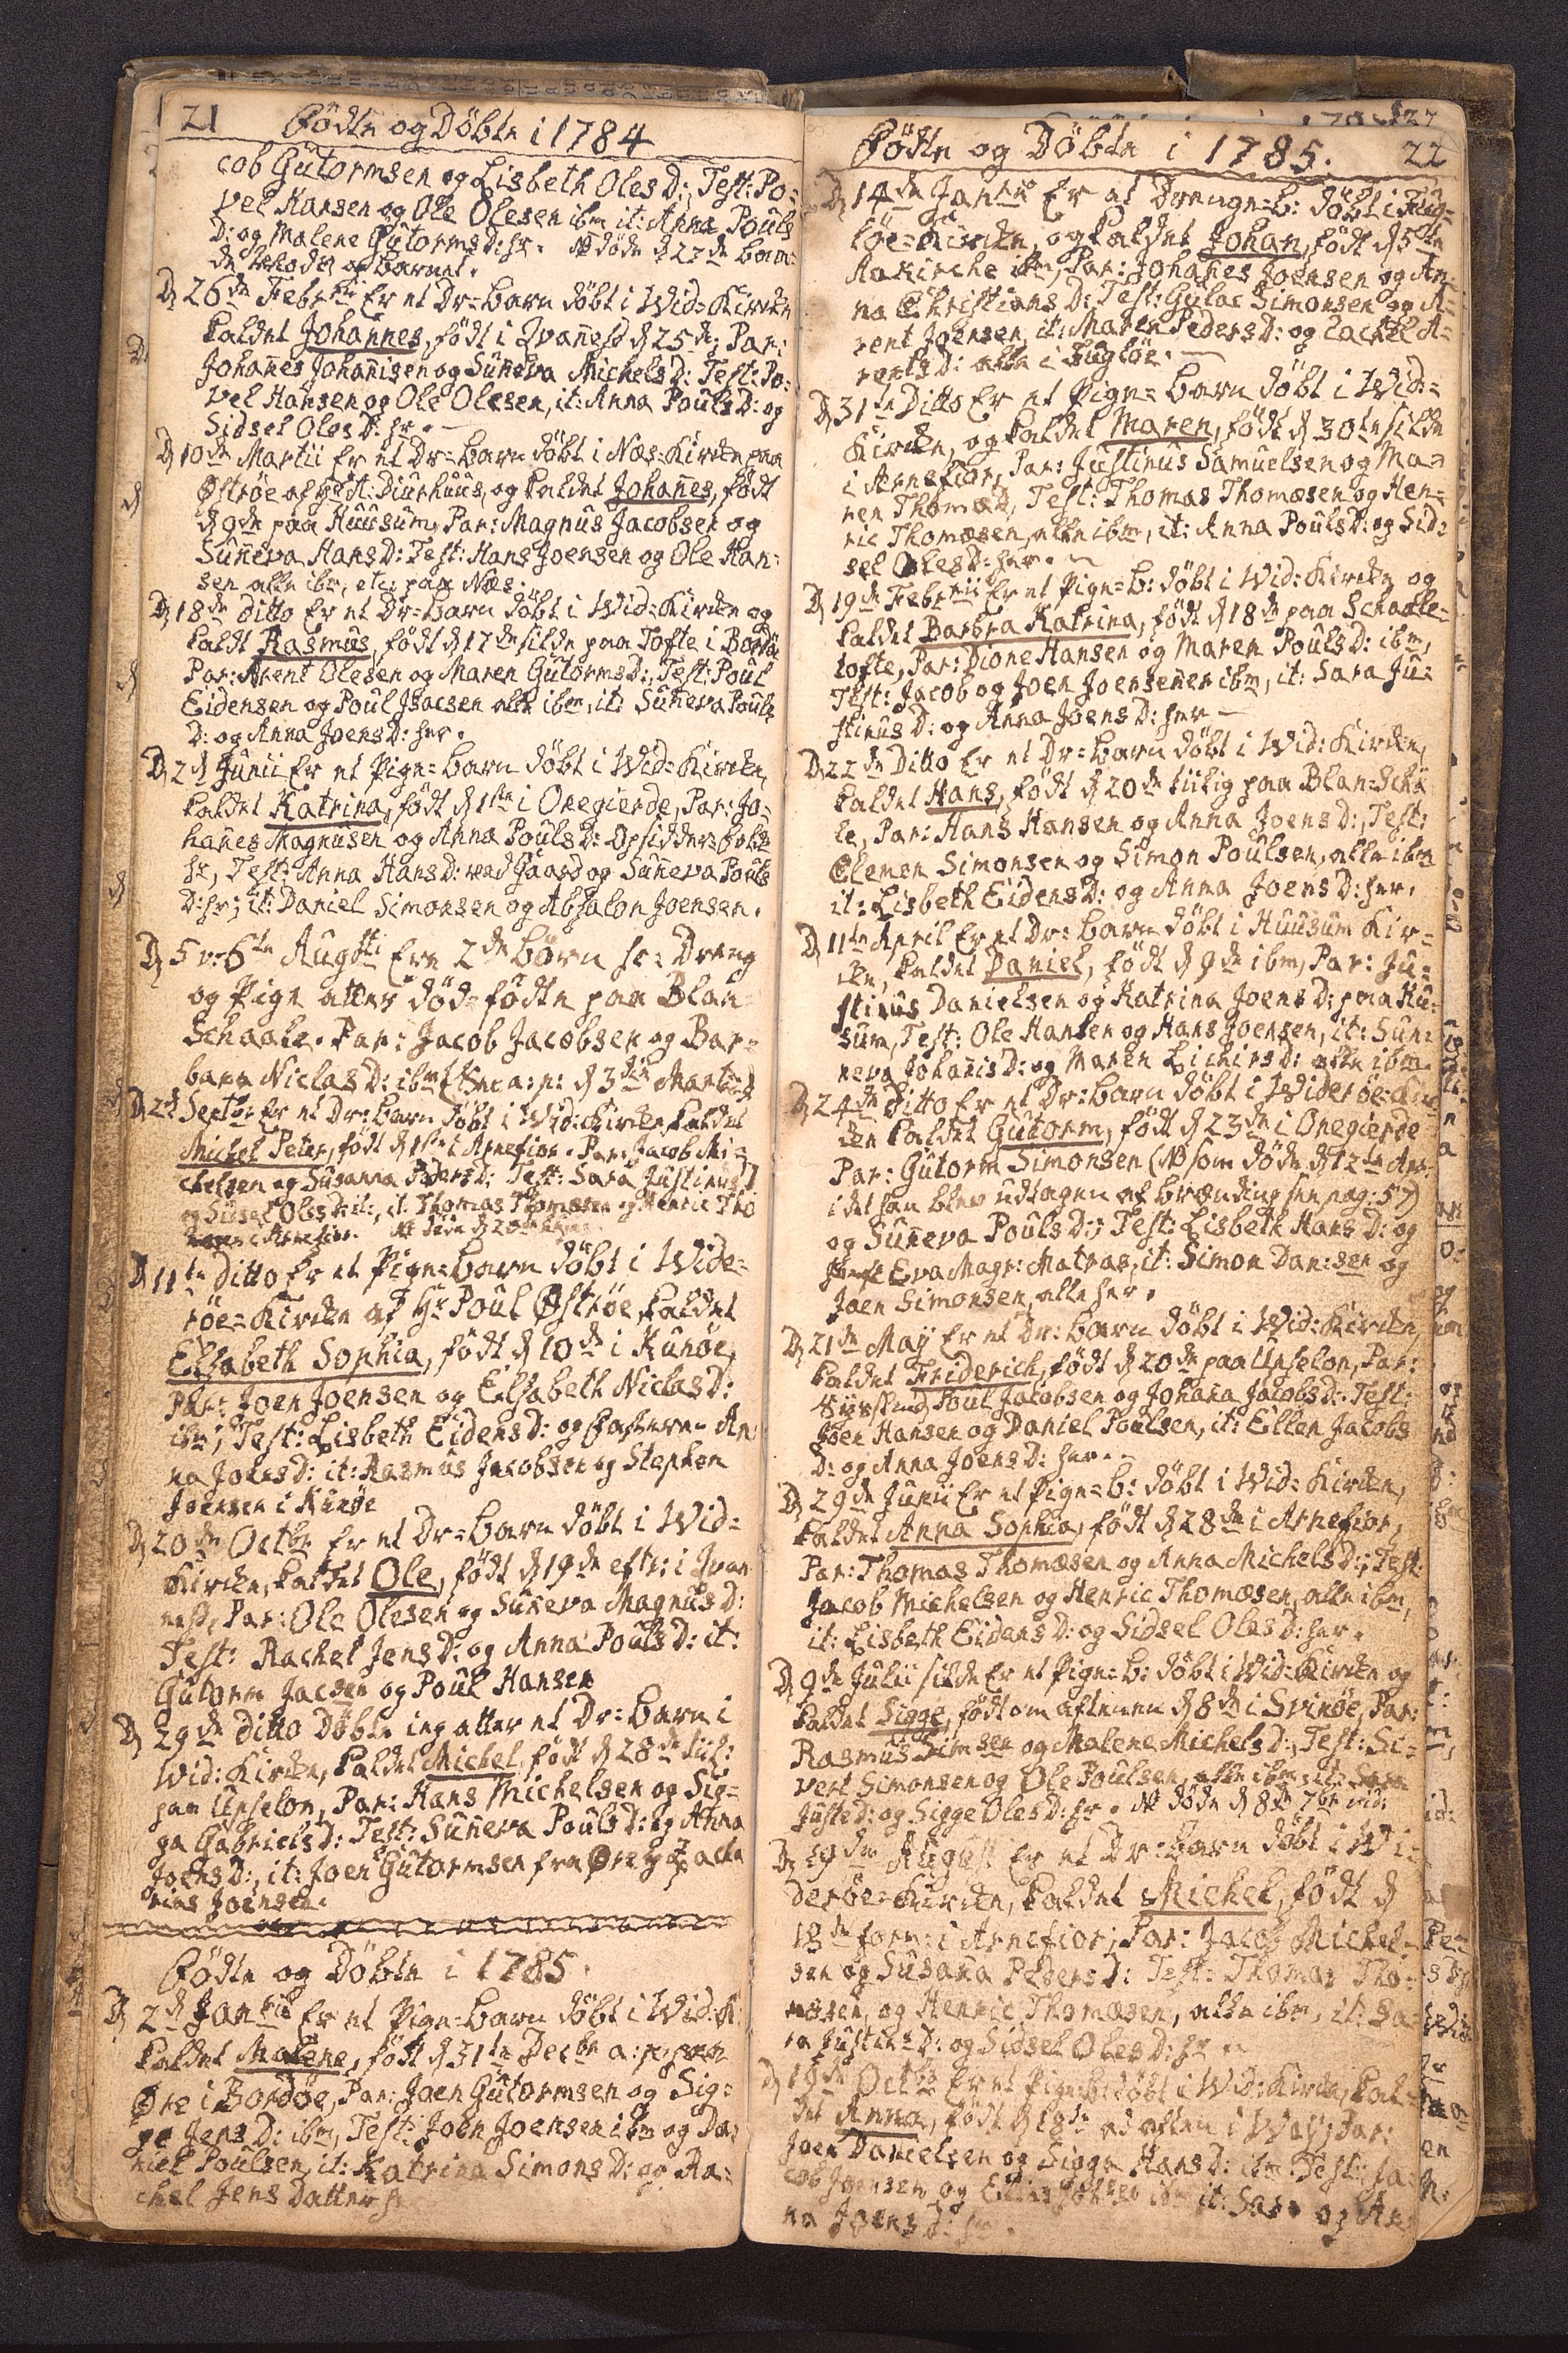 21 Födte og Döbte i 1784
cob Gütormsen og Lisbeth Oles D:, Test: Po=
vel Hansen og Ole Olesen ibm it: Anna Pouls
D: og Malene Gütorms D: hr. NB döde d 27de
af barnet.
D 26de Febrii Er et Dr=barn döbt i Wid=Kirken
kaldet Johannes, födt i Qvanesd d 25de; Par:
Johañes Johañisen og Süñeva Michels D: Test: Po=
vel Hansen og Ole Olesen, it: Anna Pouls D: og
Sidsel Oles D: hr.
D 10de Martii Er et Dr=barn döbt i Næs=Kirken paa
Øströe af Hr A: Diurhuus, og kaldet Johañes, födt
d 9de paa Hüüsüm, Par: Magnus Jacobsen og
Süñeva Hans D: Test: Hans Joensen og Ole Han=
sen alle ibm, etc: paa Næs.
D 18de ditto Er et Dr=barn döbt i Wid=Kirken og
kaldt Rasmus, födt d 17de silde paa Tofte i Bordö
Par: Arent Olesen og Maren Gütorms D:, Test: Poul
Eidensen og Poul Jsacsen alle ibm, it: Süñeva Pouls
D: og Anna Joens D: her.
D 2d Junii Er et Pige=barn döbt i Wid=Kirken,
kaldet Katrina, födt d 1ste i Onegierde, Par: Jo=
hañes Magnusen og Anna Pouls D: Opsidder=folk
hr, Test: Anna Hans D: ved Gaard og Süñeva Pouls
D: hr; it: Daniel Simonsen og Absalon Joensen.
D 5 v: 6te Augsti Ere 2de börn sc: Dreng
og Pige atter död=födte paa Blan=
Schaale. Par: Jacob Jacobsen og Bar=
bara Niclas D: ibm d 3die Martii
D 2d Septbr Er et Dr=barn döbt i Wid:Kirken kaldet
Michel Peter, födt d 1ste i Arnefior. Par: Jacob Mi=
chelsen og Susanna Peders D: Test: Sara Justinus D
og Sidsel Oles D: it: Thomas Thomæsen og Henric Tho
i Arnefior. NB döde d 20de
D 11te Ditto Er et Pige=barn döbt i Wide=
röe=Kirken af Hr Poul Øströe kaldet
Elsabeth Sophia, födt d 10de i Kunöe,
Par: Joen Joensen og Elsabeth Niclas D:
ibm; Test: Lisbeth Eidens D: og An
na Joens D: it: Rasmus Jacobsen og Stephen
Joensen i Kunöe
D 20de Octbr Er et Dr=barn döbt i Wid=
Kirken, kaldet Ole, födt d 19de eftr: i Qvan
ness, Par: Ole Olesen og Süñeva Magnus D:
Test: Rachel Jens D: og Anna Pouls D: it:
Gutorm Jacsen og Poul Hansen
D 29de ditto Döbte ieg atter et Dr=barn i
Wid: Kirken, kaldet Michel, födt d 28de
paa Upselon, Par: Hans Michelsen og Sig=
ga Gabriels D: Test: Süñeva Pouls D: og Anna
Joens D:, it: Joen Gütormsen fra Öre og Zacha
rias Joensen.
Födte og Döbte i 1785.
D 2d Janrii Er et Pige=barn döbt i Wid: K:
kaldet Malene, födt d 31te Decbr a: p:
Öre i Bordöe, Par: Joen Gütormsen og Sig=
ge Jens D: ibm, Test: Joen Joensen ibm og Da=
niel Poulsen, it: Katrina Simons D: og Ra=
chel Jens Datter
Födte og Döbte i 1785. 22
D 14de Janrii Er et Drenge=b: döbt i Fug=
löe=Kirke, og kaldet Johan, födt d 5te
Aakirche ibm, Par: Johañes Joensen og An=
na Christians D: Test: Gulac Simonsen og A=
rent Joensen, it: Maren Peders D: og Rachel A=
rents D: alle i Fuglöe.
D 31te Ditto Er et Pige=barn döbt i Wid=
Kirken, og kaldet Maren, födt d 30te silde
i Arnefior, Par: Justinus Samuelsen og Ma=
ren Thomæ D, Test: Thomas Thomæsen og Hen=
ric Thomæsen, alle ibm, it: Anna Pouls D: og Sid=
sel Oles D: her.
D 19de Febrii Er et Pige=b: döbt i Wid: Kirken og
kaldet Barbra Katrina, födt d 18de paa Schaale=
tofte, Par: Dione Hansen og Maren Pouls D: ibm,
Test: Jacob og Joen Joensener ibm, it: Sara Ju=
stinus D: og Anna Joens D: her
D 22de Ditto Er et Dr=barn döbt i Wid: Kirken,
kaldet Hans, födt d 20de tiilig paa Blan=Scha
le, Par: Hans Hansen og Anna Joens D:, Test:
Clemen Simonsen og Simon Poulsen, alle ibm
it: Lisbeth Eidens D: og Anna Joens D: her.
D 11te April Er et Dr=barn döbt i Huusum Kir=
ke, kaldet Daniel, födt d 9de ibm, Par: Ju=
stinus Danielsen og Katrina Joens D: paa Hu=
sum, Test: Ole Hansen og Hans Joensen, it: Sun=
neva Johañis D: og Maren D: alle ibm
D 24de Ditto Er et Dr=barn döbt i Wideröe=Kir
ken kaldet Gutorm, födt d 23de i Onegierde
Par: Gutorm Simonsen (NB som döde d 12te Apr:
i det han blev udtagen af brændingen pag: 57)
og Süñeva Pouls D:; Test: Lisbeth Hans D: og
Eva Magr: Matras, it: Simon Dan:sen og
Joen Simonsen, alle her.
D 21de Maÿ Er et Dr=barn döbt i Wid: Kirken,
kaldet Friderich, födt d 20de paa Upselon, Par:
Poul Jacobsen og Johaña Jacobs D: Test:
Joen Hansen og Daniel Poulsen, it: Ellen Jacobs
D: og Anna Joens D: her.
D 29de Junii Er et Pige=b: döbt i Wid: Kirken,
kaldet Anna Sophia, födt d 28de i Arnefior,
Par: Thomas Thomæsen og Anna Michels D:; Test:
Jacob Michelsen og Henric Thomæsen, alle ibm,
it: Lisbeth Eidens D: og Sidsel Oles D: her.
D 9de Julii silde Er et Pige=b: döbt i Wid: Kirken og
kaldet Sigge, födt om aftenen d 8de i Svinöe, Par:
Rasmus Simsen og Malene Michels D:, Test: Si=
vert Simonsen og Ole Poulsen, alle ibm, it: Sara
Just: D: og Sigge Oles D: hr. NB döde d 8de 7br
D 19de August Er et Dr=barn döbt i Wi=
deröe=Kirken, kaldet Michel, födt d
18de form: i Arnefior; Par: Jacob Michel=
sen og Susaña Peders D: Test: Thomas Tho=
mæsen, og Henric Thomæsen, alle ibm, it: Sa=
ra Justinus D: og Sidsel Oles D: hr
D 19de Octbr Er et Pige=b: döbt i Wid: Kirke, kal=
det Anna, födt d 18de i Waÿ; Par:
Joen Danielsen og Sigga Hans D: ibm Test: Ja=
cob Joensen og ibm it: Sara og An=
na Joens D: hr.